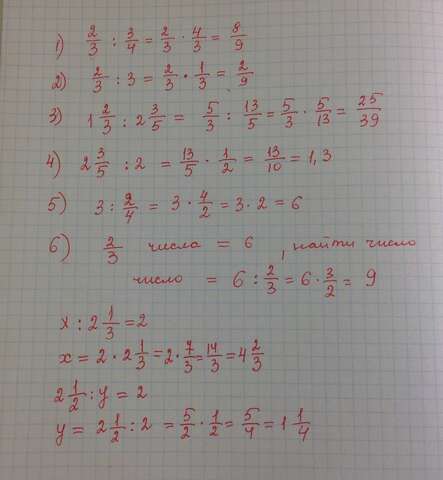 1) 2/3 : 3/4 = 2/3 · 4/3 = 8/9
2) 2/3 : 3 = 2/3 · 1/3 = 2/9
3) 1 2/3 : 2 3/5 = 5/3 : 13/5 = 5/3 · 5/13 = 25/39
4) 2 3/5 : 2 = 13/5 · 1/2 = 13/10 = 1,3
5) 3 : 2/4 = 3 · 4/2 = 3 · 2 = 6
6) 2/3 числа = 6, найти число
число = 6 : 2/3 = 6 · 3/2 = 9
x : 2 1/3 = 2
x = 2 · 2 1/3 = 2 · 7/3 = 14/3 = 4 2/3
2 1/2 : y = 2
y = 2 1/2 : 2 = 5/2 · 1/2 = 5/4 = 1 1/4